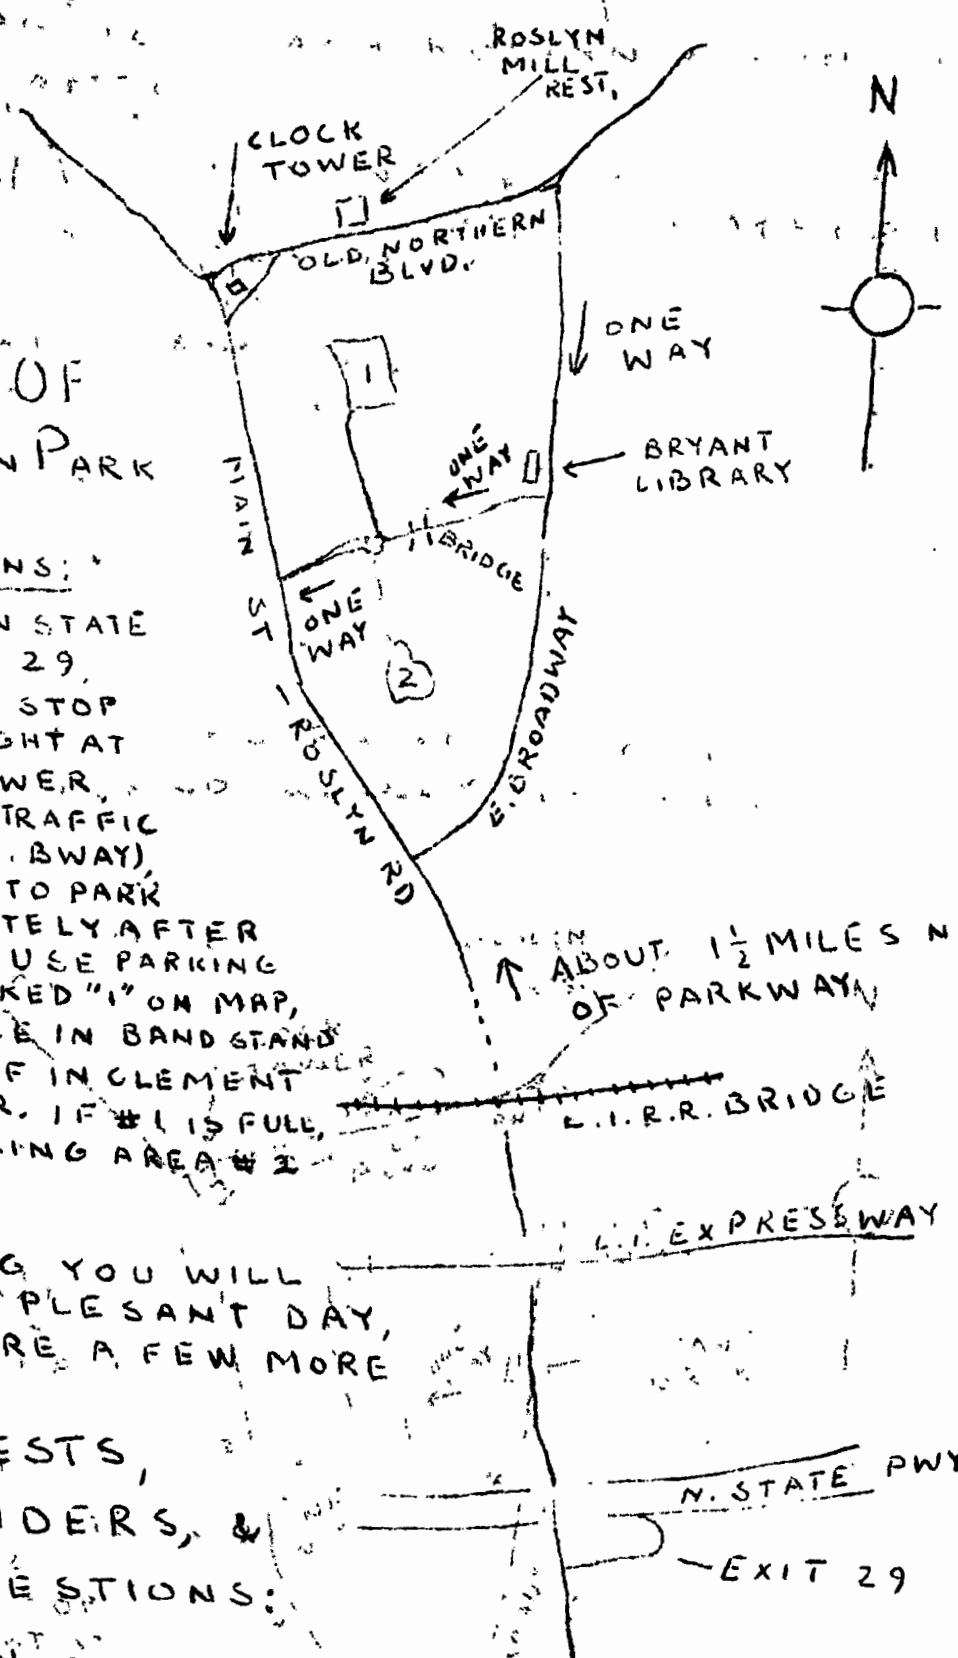 ROSLYN
MILL
REST.
N
CLOCK
TOWER
OLD NORTHERN
BLVD.
ONE
WAY
OF
1
PARK
ONE
WAY
BRYANT
LIBRARY
MAIN ST - ROSLYN RD
BRIDGE
ONE
WAY
2
E. BROADWAY
NS:
N STATE
29,
STOP
GHT AT
WER,
TRAFFIC
. BWAY),
TO PARK
TELY AFTER
USE PARKING
KED "1" ON MAP,
E IN BANDSTAND
F INCLEMENT
R. IF #1 IS FULL,
ING AREA # 2
ABOUT 1½ MILES N
OF PARKWAY
L.I.R.R. BRIDGE
L.I. EXPRESSWAY
G YOU WILL
PLESANT DAY,
RE A FEW MORE
ESTS,
DERS, &
ESTIONS:
N. STATE PWY
EXIT 29